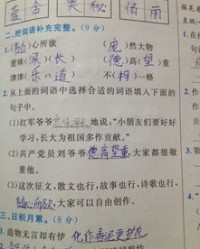 二、把词语补充完整。(9分)
1. 心所欲 (庞)然大物
意味(深)长 (德)高(望)重
津津(乐)道 不(相)一格
2. 从上面的词语中选择合适的词语填入下面的
句子中。
(1)红军爷爷 地说:“小朋友们要好好
学习,长大为祖国多作贡献。”
(2)共产党员刘爷爷德高望重,大家都很敬
重他。
(3)这次征文,散文也行,故事也行,诗歌也行,
大家可以自由创作。
三、日积月累。(8分)
1. 造物无言却有情 化作春泥更护花